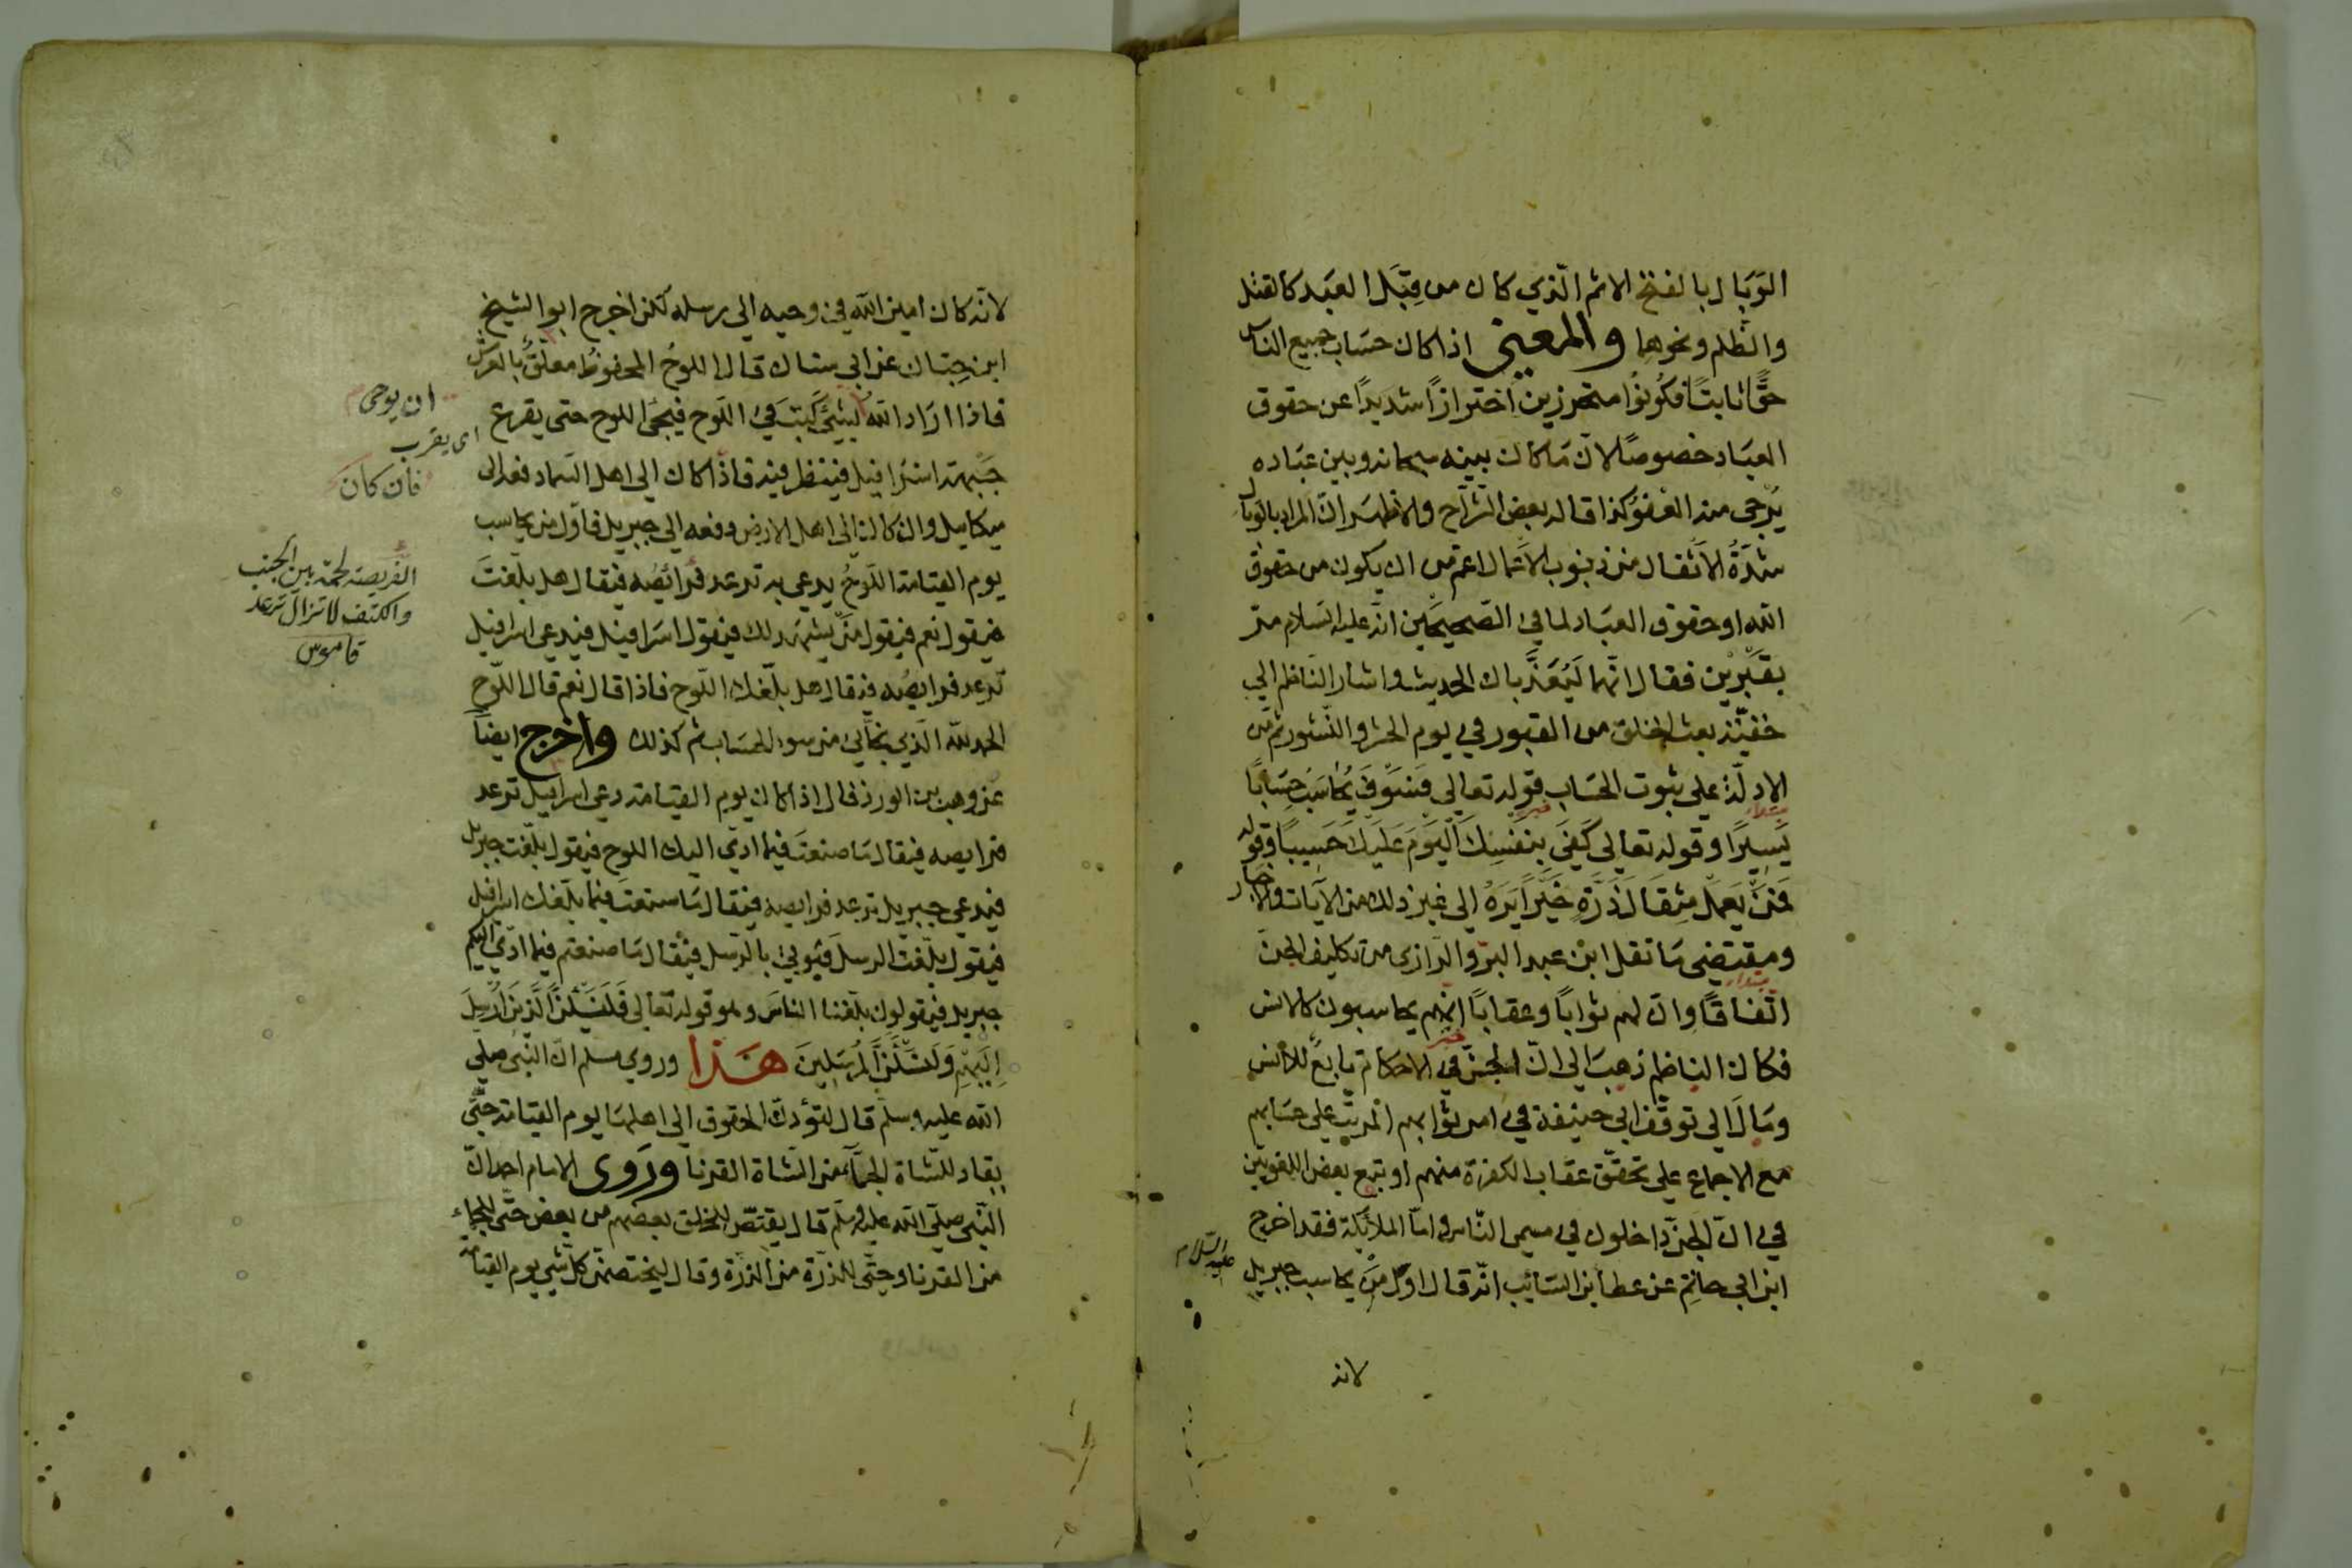 الوَبَال بالفتح الاثم الّذي كان من قِبَل العبَد كالقتل
والظّلم ونحوها والمعنى اذا كان حسَاب جميع الناس
حقًّا ثابتًا فكُونُوا متحرزين احترازًا شديدًا عن حقوق
العبَاد خصوصًا لانّ مَا كان بينه سبحانه وبين عبَاده
يُرْجى منه العَفوُ كذا قاله بعض الشرّاح والاظهَر انّ المراد بالوبال
شدّةُ الاَثقال من ذنوب الاَعمال اعمّ من ان يكون من حقوق
الله او حقوق العبَاد لما في الصّحيحَين انّه عليه السّلام مرّ
بقَبْرَيْن فقال انّهما لَيُعَذّبان الحديث واشار النّاظم الى
بعث الخلق من القبور في يوم الحشر والنّشور ثم من
الادلّة على ثبوت الحسَاب قوله تعالى فَسَوفَ يُحَاسَبُ حِسَابًا
مبتداء خبر
يَسِيرًا وقوله تعالى كَفَى بِنَفسِكَ اليَومَ عَلَيكَ حَسِيبًا وقوله
فَمَن يَعمَل مِثقَالَ ذَرَّةٍ خَيرًا يَرَهُ الى غير ذلك من الآيات والاخبار
ومقتضى مَا نقل ابن عبد البرّ والرّازي من تكليف الجنّ
مبتداء
اتّفاقًا وانّ لهم ثوابًا وعقابًا انّهم يحاسبون كالانس
خبر
فكان الناظم ذهبَ الى انّ الجنّ في الاحكام تابعٌ للانس
ومَالَ الى توقّف ابي حنيفة في امر ثوابهم المرتّب على حسَابهم
مع الاجماع على تحقّق عقاب الكفرة منهم او تبع بعض اللغويّين
في انّ الجنّ داخلون في مسمى النّاس وامّا الملائكة فقد اخرج
ابن ابي حاتِم عن عطا بن السَائب انّه قال اوّل مَن يحاسب جبريل
عليه السّلام
لانه
لانّه كان امين الله في وحيه الى رسله لكن اخرج ابو الشيخ
ابن حِبّان عن ابي سنان قال اللوحُ المحفوظُ معلّقٌ بالعرش
فاذا ارَاد الله بشيئٍ كَتبَ في اللّوح فيجئ اللوح حتى يقرع
ان يوحى
اى يقرب
جَبهَة اسرافيل فينظر فيه فاذا كان الى اهل السّماء دفعه الى
فان كان
ميكاييل وان كان الى اهل الارض دفعه الى جبريل فاوّل من يحاسب
يوم القيامة اللّوحُ يدعى به ترعد فَرائصُه فيقال هل بلّغتَ
الفريصة لحمة بين الجنب
والكتف لا تزال ترعد
قاموس
فيقول نعم فيقول مَن يشهَد لك فيقول اسَرافيل فيدعى اسرافيل
ترعد فرايصُه فيقال هل بلّغك اللّوح فاذا قال نعم قال اللّوح
الحمد لله الّذي نجّاني من سوء الحسَاب ثم كذلك واخرج ايضًا
عن وهب بن الورد قال اذا كان يوم القيامة دعي اسرافيل ترعد
فرايصه فيقال مَا صنعتَ فيما ادّى اليك اللوح فيقول بلّغت جبريل
فيدعى جبريل ترعد فرايصه فيقال مَا صنعتَ فيما بلّغك اسرافيل
فيقول بلّغت الرسلَ فيُوتى بالرّسل فيُقال مَا صنعتم فيما ادّى اليكم
جبريل فيقولون بلّغنا الناسَ وهو قوله تعالى فَلَنَسئَلَنَّ الَّذِينَ اُرسِلَ
اِلَيهِم وَلَنَسئَلَنَّ المُرسَلِينَ هَذا وروي مسلم انّ النّبى صلّى
الله عليه وسلّم قال لتؤدنّ الحقوق الى اهلهَا يوم القيامة حتّى
يقاد للشّاة الجمّاء من الشاة القرنا ورَوى الامام احمد انّ
النّبى صلّى الله عليه وسلّم قال يقتصّ للخلق بعضهم من بعض حتّى للجمّاء
من القرنا وحتّى للذرّة من الذرّة وقال ليختصمنّ كلّ شي يوم القيامة